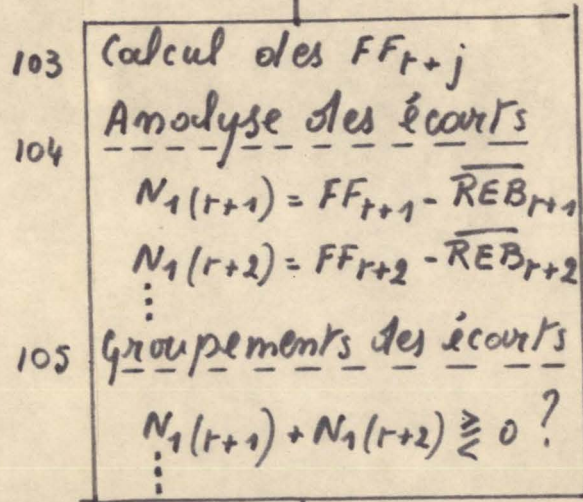 103 Calcul des FF_{r+j}
104 Analyse des écarts
N_1(r+1) = FF_{r+1} - \overline{REB}_{r+1}
N_1(r+2) = FF_{r+2} - \overline{REB}_{r+2}
⋮
105 Groupements des écarts
N_1(r+1) + N_1(r+2) ⪌ 0 ?
⋮